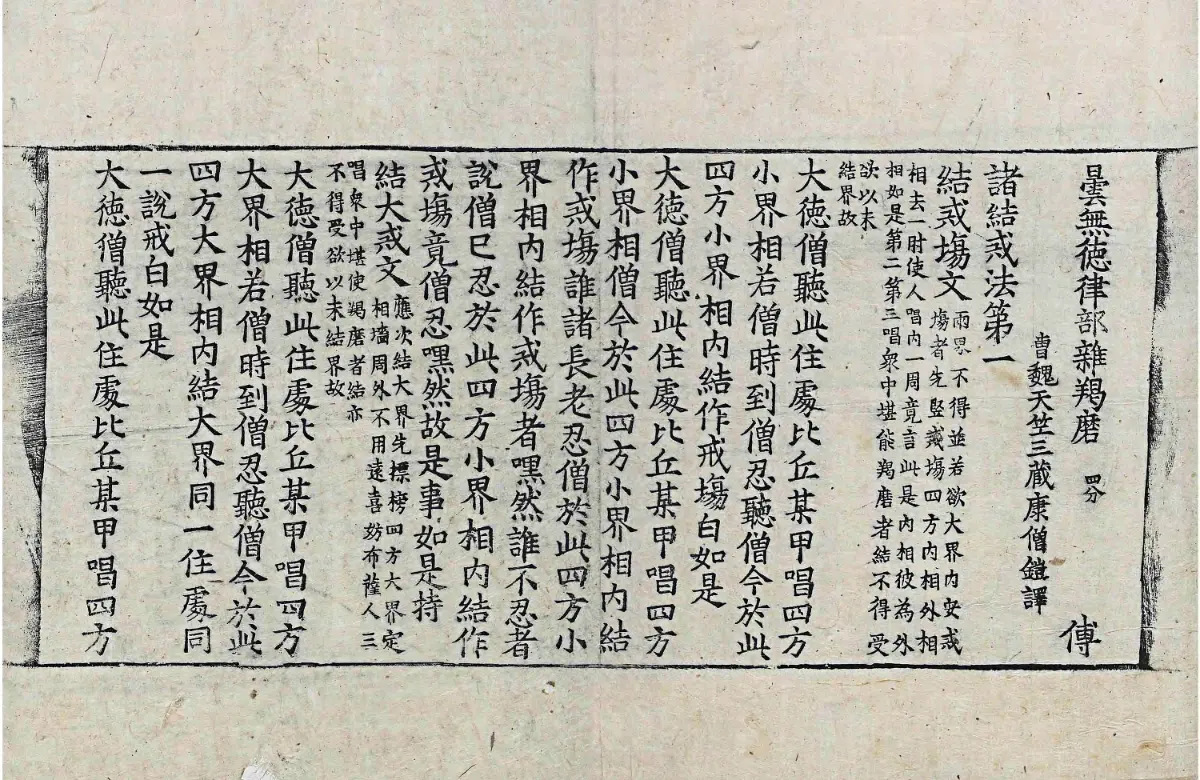 曇無德律部雜羯磨 四分 傅
曹魏天竺三藏康僧鎧譯
諸結戒法第一
結戒塲文
兩界不得並若欲大界內安戒
塲者先竪戒塲四方內相外相
相去一肘使人唱內一周竟言此是內相彼為外
相如是第二第三唱衆中堪能羯磨者結不得受
欲以未
結界故
大德僧聽此住處比丘某甲唱四方
小界相若僧時到僧忍聽僧今於此
四方小界相內結作戒塲白如是
大德僧聽此住處比丘某甲唱四方
小界相僧今於此四方小界相內結
作戒塲誰諸長老忍僧於此四方小
界相內結作戒塲者嘿然誰不忍者
說僧已忍於此四方小界相內結作
戒塲竟僧忍嘿然故是事如是持
結大戒文
應次結大界先標榜四方大界定
相墻周外不用遠喜妨布薩人三
唱衆中堪使羯磨者結亦
不得受欲以未結界故
大德僧聽此住處比丘某甲唱四方
大界相若僧時到僧忍聽僧今於此
四方大界相內結大界同一住處同
一說戒白如是
大德僧聽此住處比丘某甲唱四方